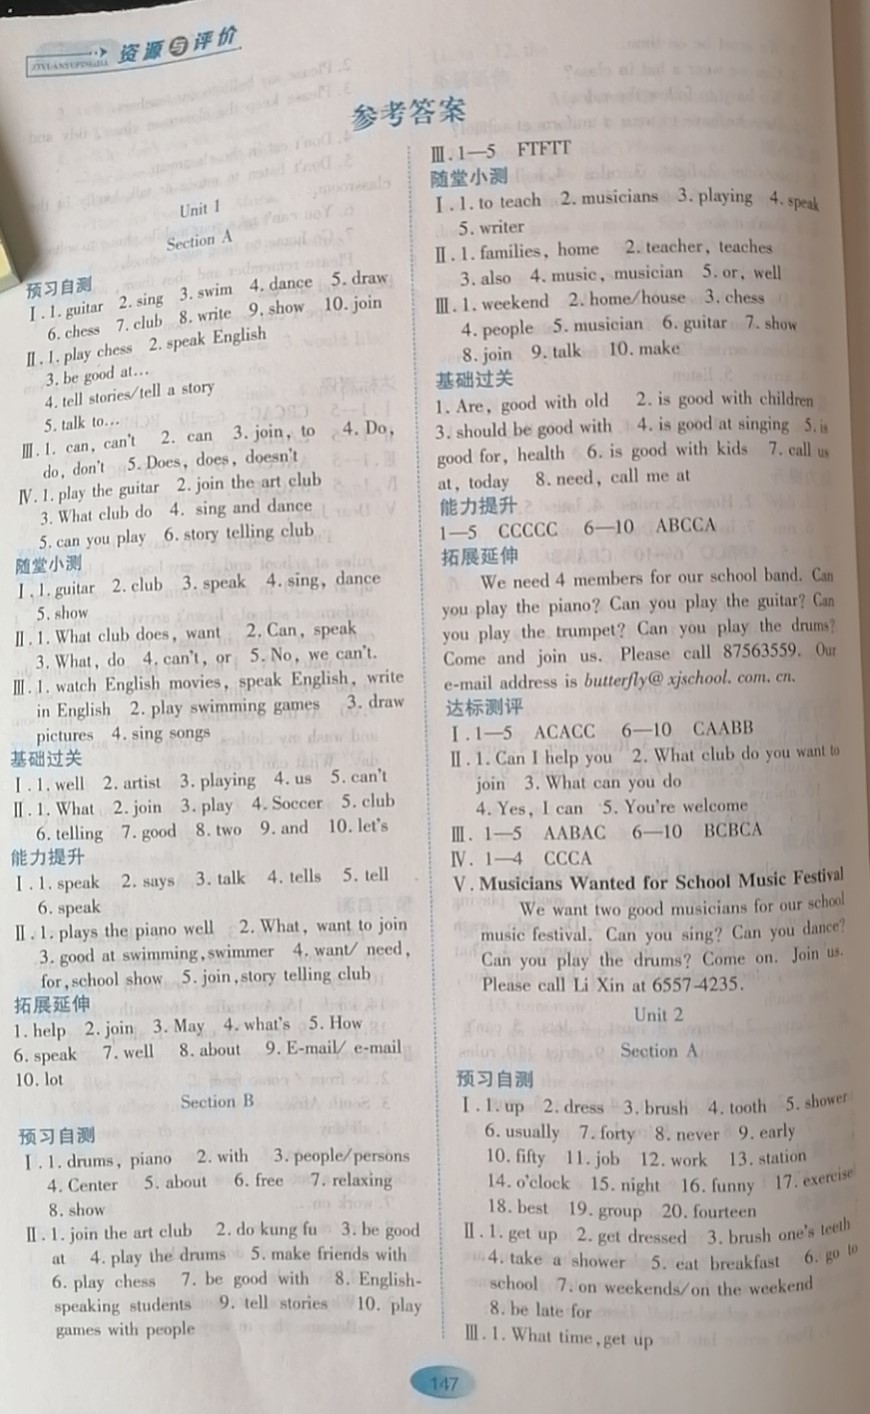 资源与评价
ZIYUANYUPINGJIA
参考答案
Unit 1
Section A
预习自测
Ⅰ.1. guitar 2. sing 3. swim 4. dance 5. draw
6. chess 7. club 8. write 9. show 10. join
Ⅱ.1. play chess 2. speak English
3. be good at…
4. tell stories/tell a story
5. talk to…
Ⅲ.1. can, can't 2. can 3. join, to 4. Do,
do, don't 5. Does, does, doesn't
Ⅳ.1. play the guitar 2. join the art club
3. What club do 4. sing and dance
5. can you play 6. story telling club
随堂小测
Ⅰ.1. guitar 2. club 3. speak 4. sing, dance
5. show
Ⅱ.1. What club does, want 2. Can, speak
3. What, do 4. can't, or 5. No, we can't.
Ⅲ.1. watch English movies, speak English, write
in English 2. play swimming games 3. draw
pictures 4. sing songs
基础过关
Ⅰ.1. well 2. artist 3. playing 4. us 5. can't
Ⅱ.1. What 2. join 3. play 4. Soccer 5. club
6. telling 7. good 8. two 9. and 10. let's
能力提升
Ⅰ.1. speak 2. says 3. talk 4. tells 5. tell
6. speak
Ⅱ.1. plays the piano well 2. What, want to join
3. good at swimming,swimmer 4. want/ need,
for,school show 5. join,story telling club
拓展延伸
1. help 2. join 3. May 4. what's 5. How
6. speak 7. well 8. about 9. E-mail/ e-mail
10. lot
Section B
预习自测
Ⅰ.1. drums, piano 2. with 3. people/persons
4. Center 5. about 6. free 7. relaxing
8. show
Ⅱ.1. join the art club 2. do kung fu 3. be good
at 4. play the drums 5. make friends with
6. play chess 7. be good with 8. English-
speaking students 9. tell stories 10. play
games with people
Ⅲ.1—5 FTFTT
随堂小测
Ⅰ.1. to teach 2. musicians 3. playing 4. speak
5. writer
Ⅱ.1. families, home 2. teacher, teaches
3. also 4. music, musician 5. or, well
Ⅲ.1. weekend 2. home/house 3. chess
4. people 5. musician 6. guitar 7. show
8. join 9. talk 10. make
基础过关
1. Are, good with old 2. is good with children
3. should be good with 4. is good at singing 5. is
good for, health 6. is good with kids 7. call us
at, today 8. need, call me at
能力提升
1—5 CCCCC 6—10 ABCCA
拓展延伸
We need 4 members for our school band. Can
you play the piano? Can you play the guitar? Can
you play the trumpet? Can you play the drums?
Come and join us. Please call 87563559. Our
e-mail address is butterfly@xjschool.com.cn.
达标测评
Ⅰ.1—5 ACACC 6—10 CAABB
Ⅱ.1. Can I help you 2. What club do you want to
join 3. What can you do
4. Yes, I can 5. You're welcome
Ⅲ. 1—5 AABAC 6—10 BCBCA
Ⅳ. 1—4 CCCA
Ⅴ. Musicians Wanted for School Music Festival
We want two good musicians for our school
music festival. Can you sing? Can you dance?
Can you play the drums? Come on. Join us.
Please call Li Xin at 6557-4235.
Unit 2
Section A
预习自测
Ⅰ.1. up 2. dress 3. brush 4. tooth 5. shower
6. usually 7. forty 8. never 9. early
10. fifty 11. job 12. work 13. station
14. o'clock 15. night 16. funny 17. exercise
18. best 19. group 20. fourteen
Ⅱ.1. get up 2. get dressed 3. brush one's teeth
4. take a shower 5. eat breakfast 6. go to
school 7. on weekends/on the weekend
8. be late for
Ⅲ.1. What time,get up
147